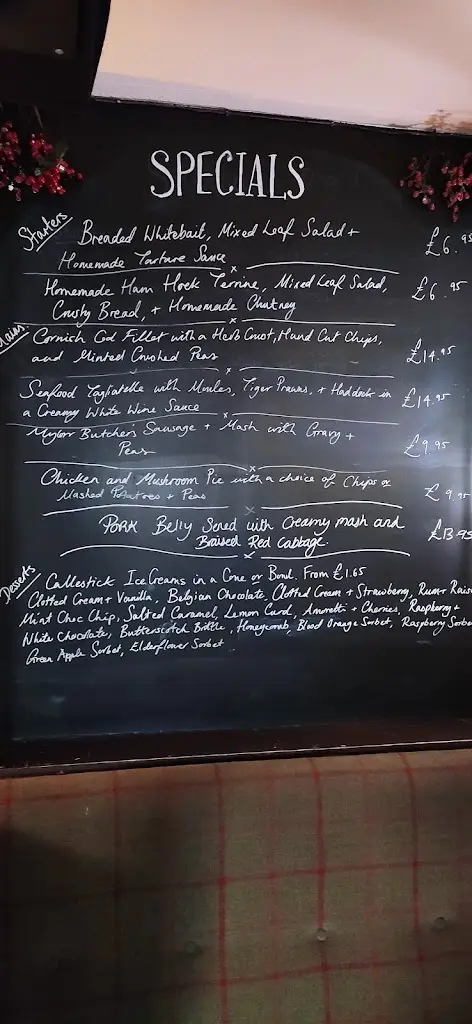 SPECIALS
Starters
Breaded Whitebait, Mixed Leaf Salad +
Homemade Tartare Sauce
£6.95
Homemade Ham Hock Terrine, Mixed Leaf Salad,
Crusty Bread, + Homemade Chutney
£6.95
Mains
Cornish Cod Fillet with a Herb Crust, Hand Cut Chips,
and Minted Crushed Peas
£14.95
Seafood Tagliatelle with Mussels, Tiger Prawns, + Haddock in
a Creamy White Wine Sauce
£14.95
Mylor Butchers Sausage + Mash with Gravy +
Peas
£9.95
Chicken and Mushroom Pie with a choice of Chips or
Mashed Potatoes + Peas
£9.95
PORK Belly Served with Creamy mash and
Braised Red Cabbage.
£13.95
Desserts
Callestick Ice Creams in a Cone or Bowl. From £1.65
Clotted Cream + Vanilla, Belgian Chocolate, Clotted Cream + Strawberry, Rum + Raisin
Mint Choc Chip, Salted Caramel, Lemon Curd, Amaretti + Cherries, Raspberry +
White Chocolate, Butterscotch Brittle, Honeycomb, Blood Orange Sorbet, Raspberry Sorbet
Green Apple Sorbet, Elderflower Sorbet